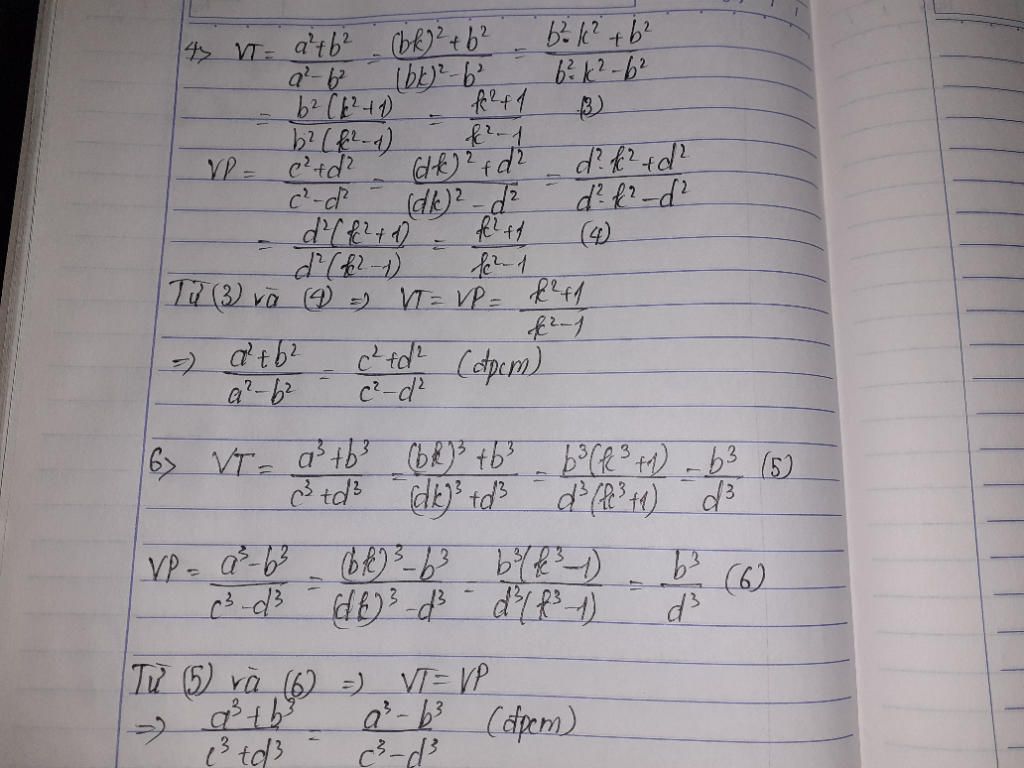 4> VT = (a²+b²)/(a²-b²) = ((bk)²+b²)/((bk)²-b²) = (b².k²+b²)/(b².k²-b²)
= (b²(k²+1))/(b²(k²-1)) = (k²+1)/(k²-1) (3)
VP = (c²+d²)/(c²-d²) = ((dk)²+d²)/((dk)²-d²) = (d².k²+d²)/(d².k²-d²)
= (d²(k²+1))/(d²(k²-1)) = (k²+1)/(k²-1) (4)
Từ (3) và (4) => VT = VP = (k²+1)/(k²-1)
=> (a²+b²)/(a²-b²) = (c²+d²)/(c²-d²) (đpcm)
6> VT = (a³+b³)/(c³+d³) = ((bk)³+b³)/((dk)³+d³) = (b³(k³+1))/(d³(k³+1)) = b³/d³ (5)
VP = (a³-b³)/(c³-d³) = ((bk)³-b³)/((dk)³-d³) = (b³(k³-1))/(d³(k³-1)) = b³/d³ (6)
Từ (5) và (6) => VT = VP
=> (a³+b³)/(c³+d³) = (a³-b³)/(c³-d³) (đpcm)